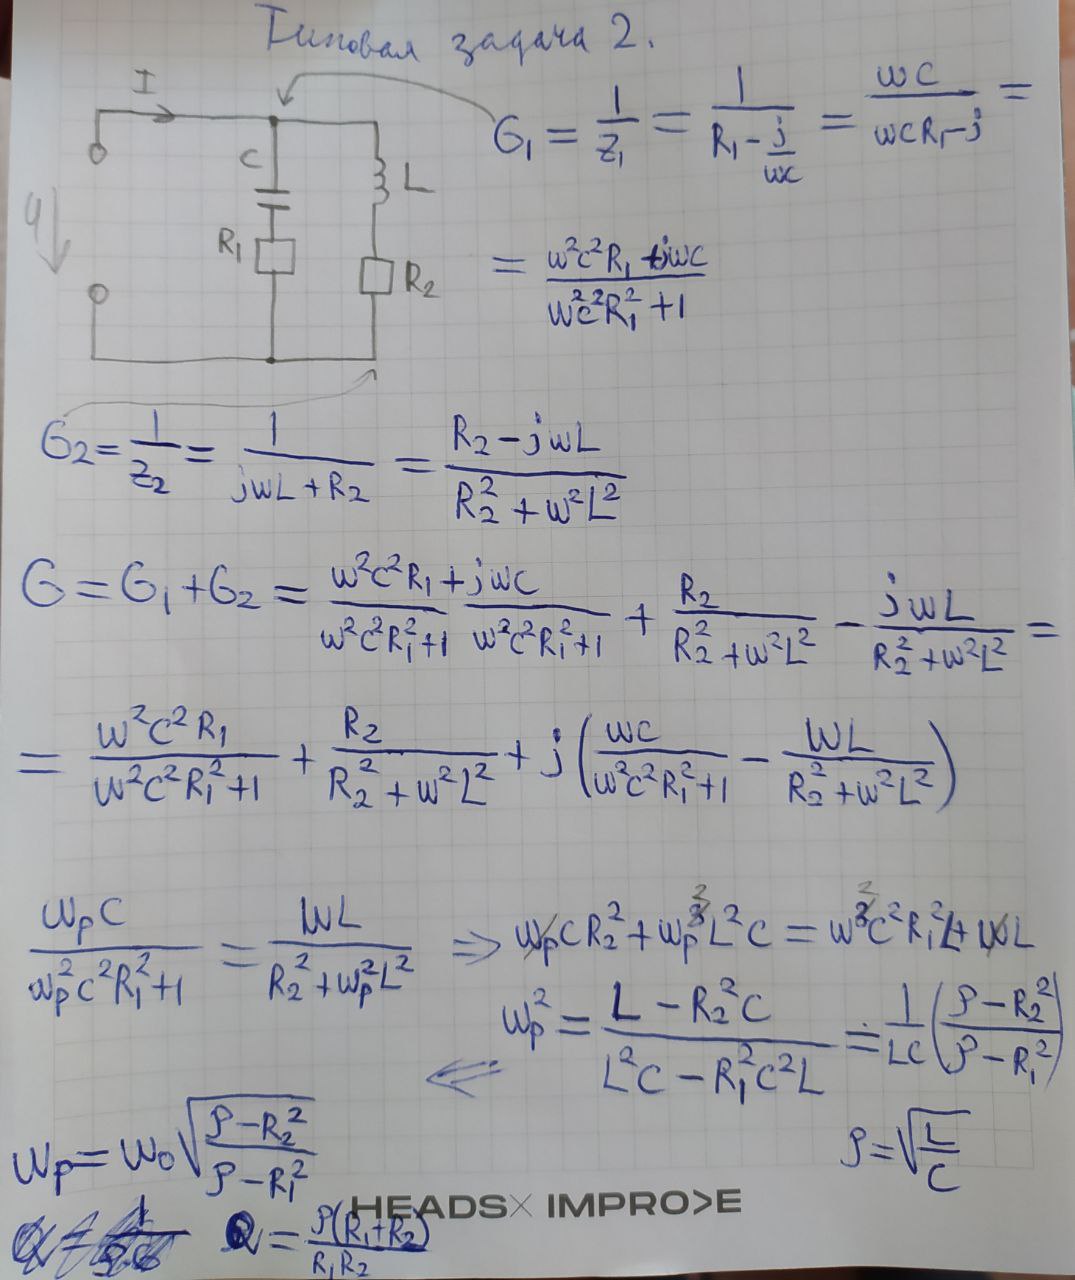 Типовая задача 2.
I
G₁ = 1/Z₁ = 1/(R₁ - j/wc) = wc/(wcR₁ - j) =
C
L
R₁
R₂
= (w²c²R₁ + jwc)/(w²c²R₁² + 1)
G₂ = 1/Z₂ = 1/(jwL + R₂) = (R₂ - jwL)/(R₂² + w²L²)
G = G₁ + G₂ = (w²c²R₁)/(w²c²R₁² + 1) + (jwc)/(w²c²R₁² + 1) + R₂/(R₂² + w²L²) - jwL/(R₂² + w²L²) =
= (w²c²R₁)/(w²c²R₁² + 1) + R₂/(R₂² + w²L²) + j(wc/(w²c²R₁² + 1) - wL/(R₂² + w²L²))
wₚC/(wₚ²c²R₁² + 1) = wL/(R₂² + wₚ²L²) ⇒ wₚCR₂² + wₚ²L²C = w²C²R₁²L + wL
wₚ² = (L - R₂²C)/(L²C - R₁²C²L) = 1/LC ((ρ - R₂²)/(ρ - R₁²))
⇐
wₚ = w₀√((ρ - R₂²)/(ρ - R₁²))
ρ = √(L/C)
HEADS×IMPRO>E
Q = ρ(R₁+R₂)/R₁R₂